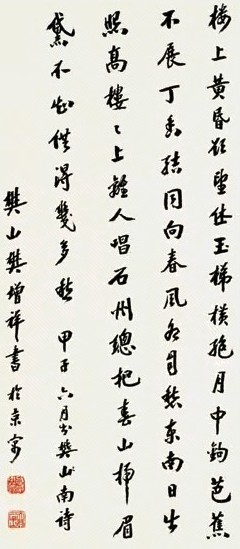 樓上黃昏欲望休玉梯橫絕月中鉤芭蕉
不展丁香結同向春風各自愁東南日出
照高樓〻上離人唱石州總把春山掃眉
黛不知供得幾多愁 甲子六月書樊南詩
樊山樊增祥書於京寓